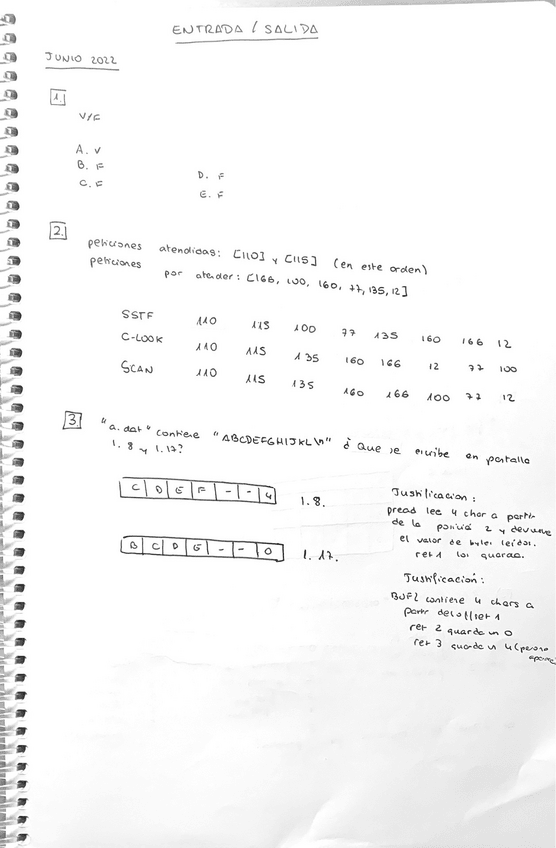 ENTRADA / SALIDA
JUNIO 2022
1.
V/F
A. V
B. F
C. F
D. F
E. F
2.
peticiones atendidas: [110] y [115] (en este orden)
peticiones por atender: [166, 100, 160, 77, 135, 12]
SSTF 110 115 100 77 135 160 166 12
C-LOOK 110 115 135 160 166 12 77 100
SCAN 110 115 135 160 166 100 77 12
3
"a.dat" contiene "ABCDEFGHIJKL\n" ¿ Que se escribe en pantalla
1. 8 y 1.17?
C | D | E | F | - | - | 4 1.8.
Justificacion:
pread lee 4 char a partir
de la posición 2 y devuelve
el valor de bytes leidos.
ret1 los guarda.
B | C | D | E | - | - | 0 1. 17.
Justificación:
BUF2 contiene 4 chars a
partir del offset 1
ret 2 guarda un 0
ret 3 guarda un 4 (pero no